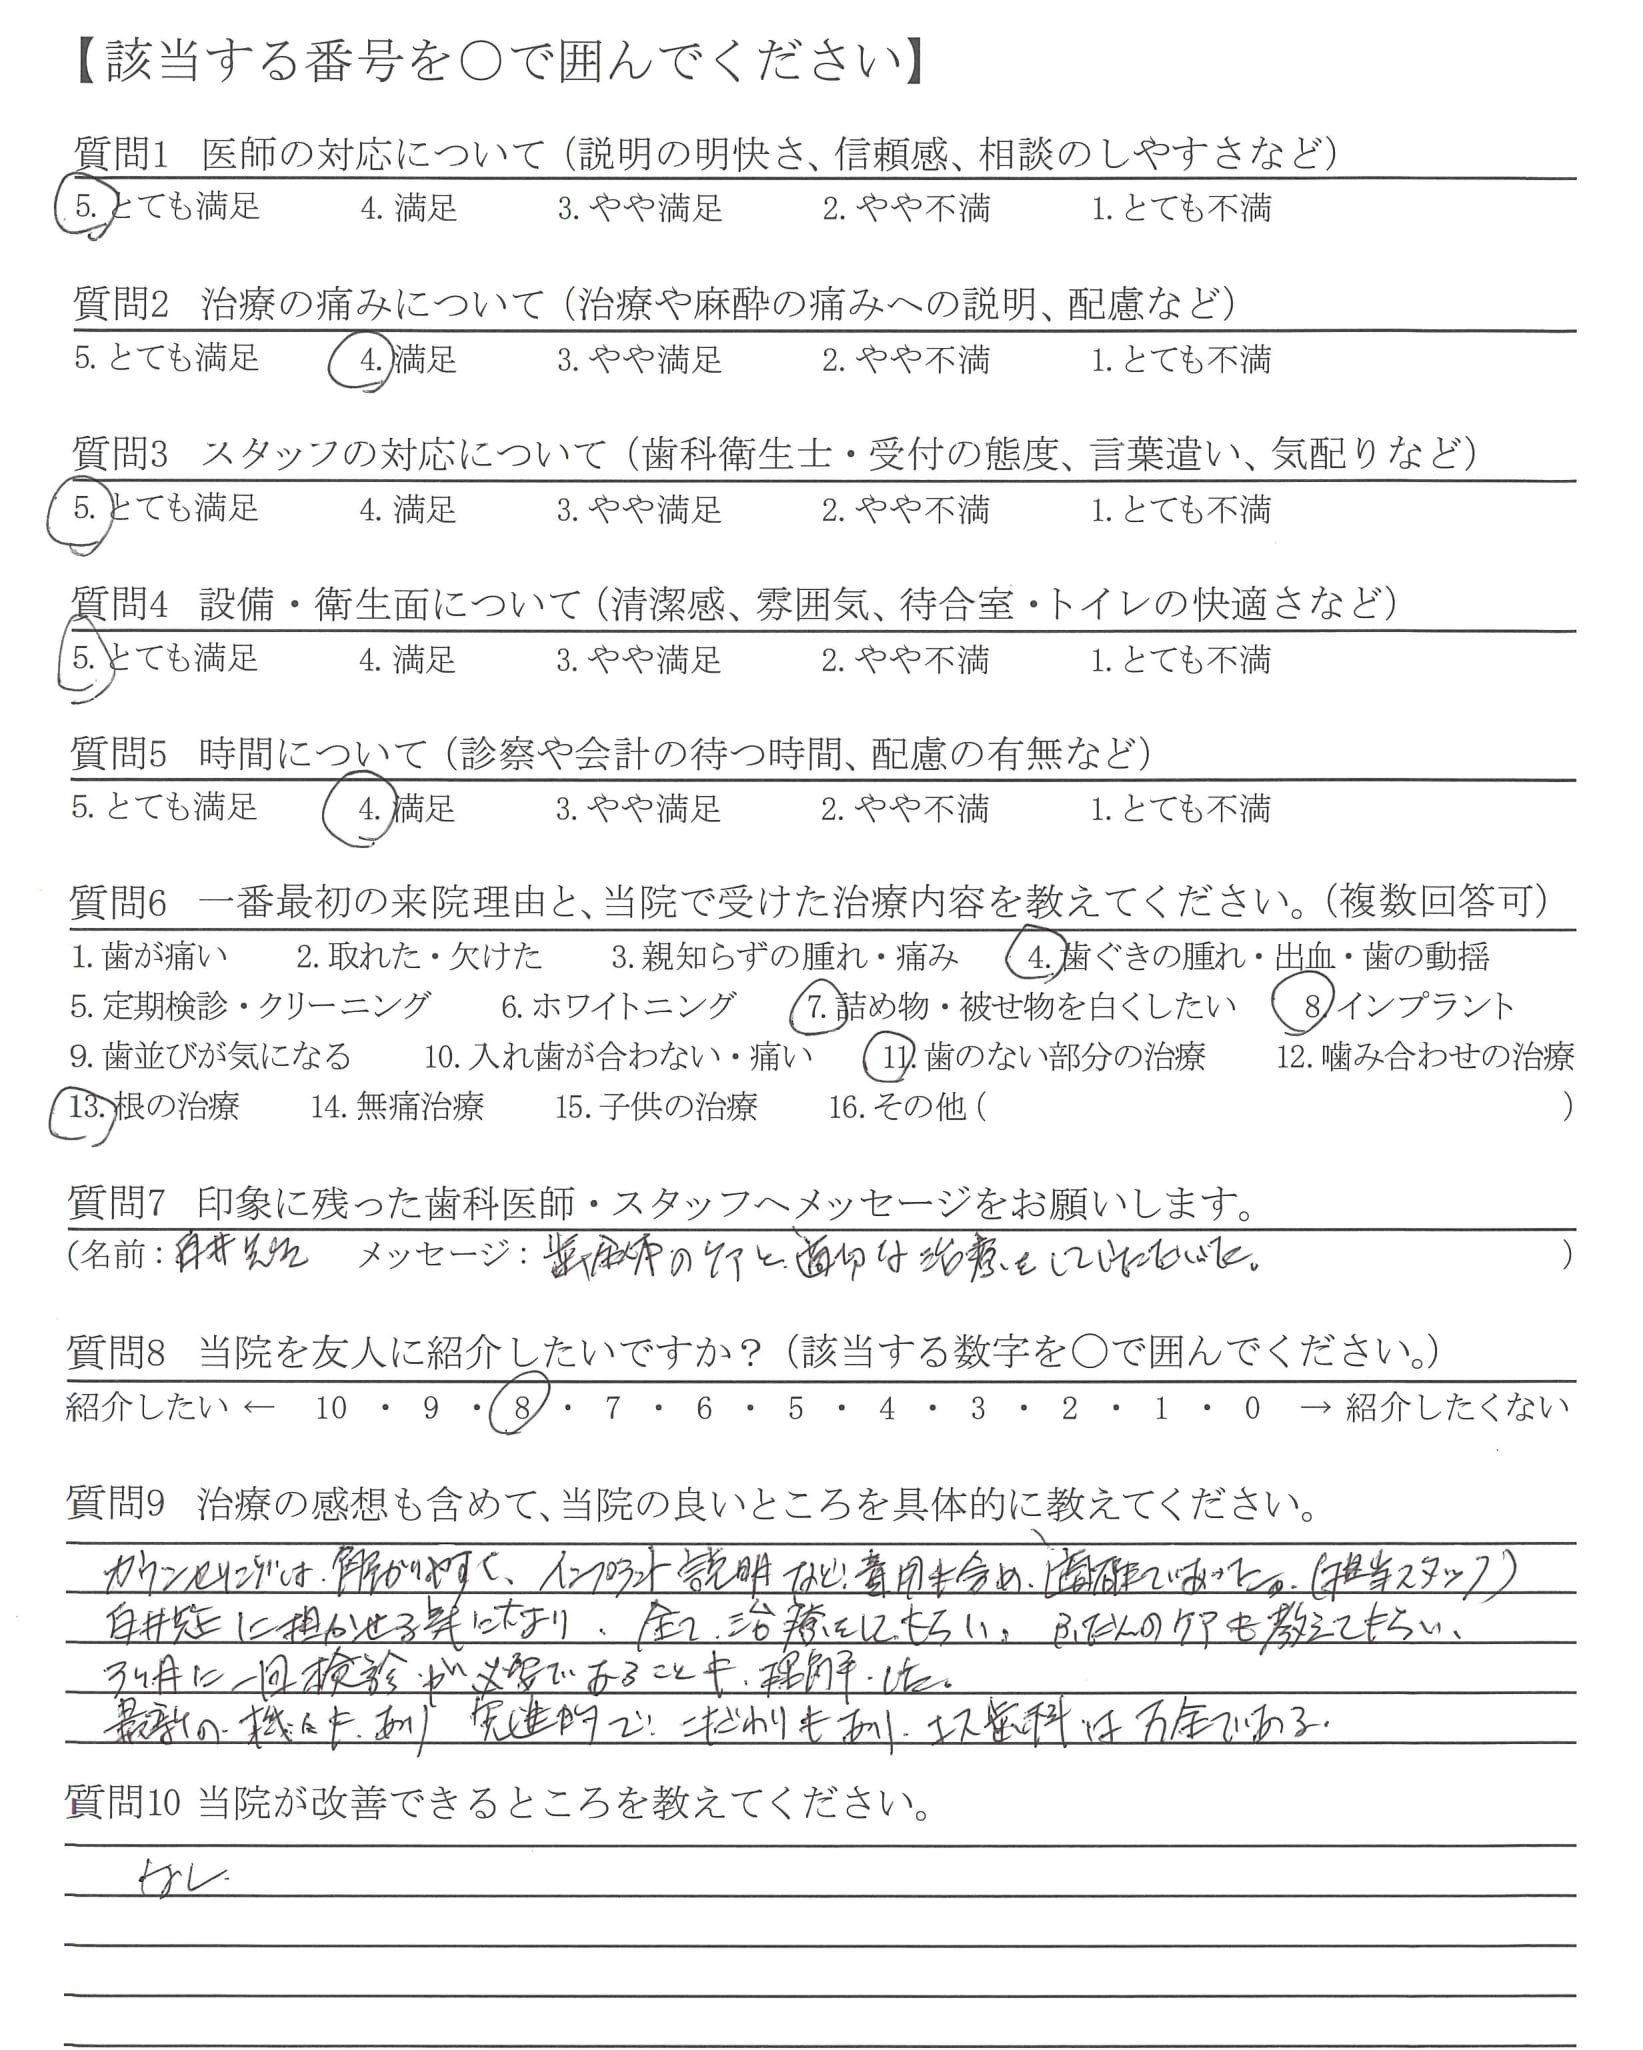 【該当する番号を○で囲んでください】
質問1 医師の対応について（説明の明快さ、信頼感、相談のしやすさなど）
5. とても満足 4. 満足 3. やや満足 2. やや不満 1. とても不満
質問2 治療の痛みについて（治療や麻酔の痛みへの説明、配慮など）
5. とても満足 4. 満足 3. やや満足 2. やや不満 1. とても不満
質問3 スタッフの対応について（歯科衛生士・受付の態度、言葉遣い、気配りなど）
5. とても満足 4. 満足 3. やや満足 2. やや不満 1. とても不満
質問4 設備・衛生面について（清潔感、雰囲気、待合室・トイレの快適さなど）
5. とても満足 4. 満足 3. やや満足 2. やや不満 1. とても不満
質問5 時間について（診察や会計の待つ時間、配慮の有無など）
5. とても満足 4. 満足 3. やや満足 2. やや不満 1. とても不満
質問6 一番最初の来院理由と、当院で受けた治療内容を教えてください。（複数回答可）
1. 歯が痛い 2. 取れた・欠けた 3. 親知らずの腫れ・痛み 4. 歯ぐきの腫れ・出血・歯の動揺
5. 定期検診・クリーニング 6. ホワイトニング 7. 詰め物・被せ物を白くしたい 8. インプラント
9. 歯並びが気になる 10. 入れ歯が合わない・痛い 11. 歯のない部分の治療 12. 噛み合わせの治療
13. 根の治療 14. 無痛治療 15. 子供の治療 16. その他（ ）
質問7 印象に残った歯科医師・スタッフへメッセージをお願いします。
（名前：白井先生 メッセージ：歯周病のケアと、適切な治療をしていただいた。）
質問8 当院を友人に紹介したいですか？（該当する数字を○で囲んでください。）
紹介したい ← 10 ・ 9 ・ 8 ・ 7 ・ 6 ・ 5 ・ 4 ・ 3 ・ 2 ・ 1 ・ 0 → 紹介したくない
質問9 治療の感想も含めて、当院の良いところを具体的に教えてください。
カウンセリングは、解かりやすく、インプラント説明など、費用も含め、適確であった。（担当スタッフ）
白井先生に担かせる気になり、全て、治療をしてもらい。ふだんのケアも教えてもらい、
3ヶ月に一回検診が必要であることも、理解した。
最新の機もあり 先進的で、こだわりもあり、エス歯科は万全である。
質問10 当院が改善できるところを教えてください。
なし.